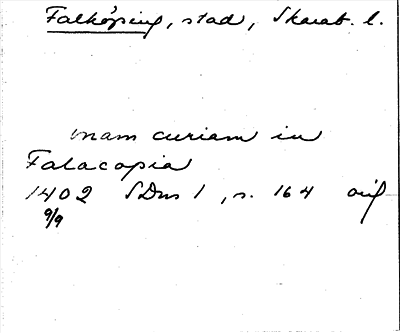 Falköping, stad, Skarab. l.
unam curiam in
Falacopia
1402 SDns 1, s. 164 oif
9/9